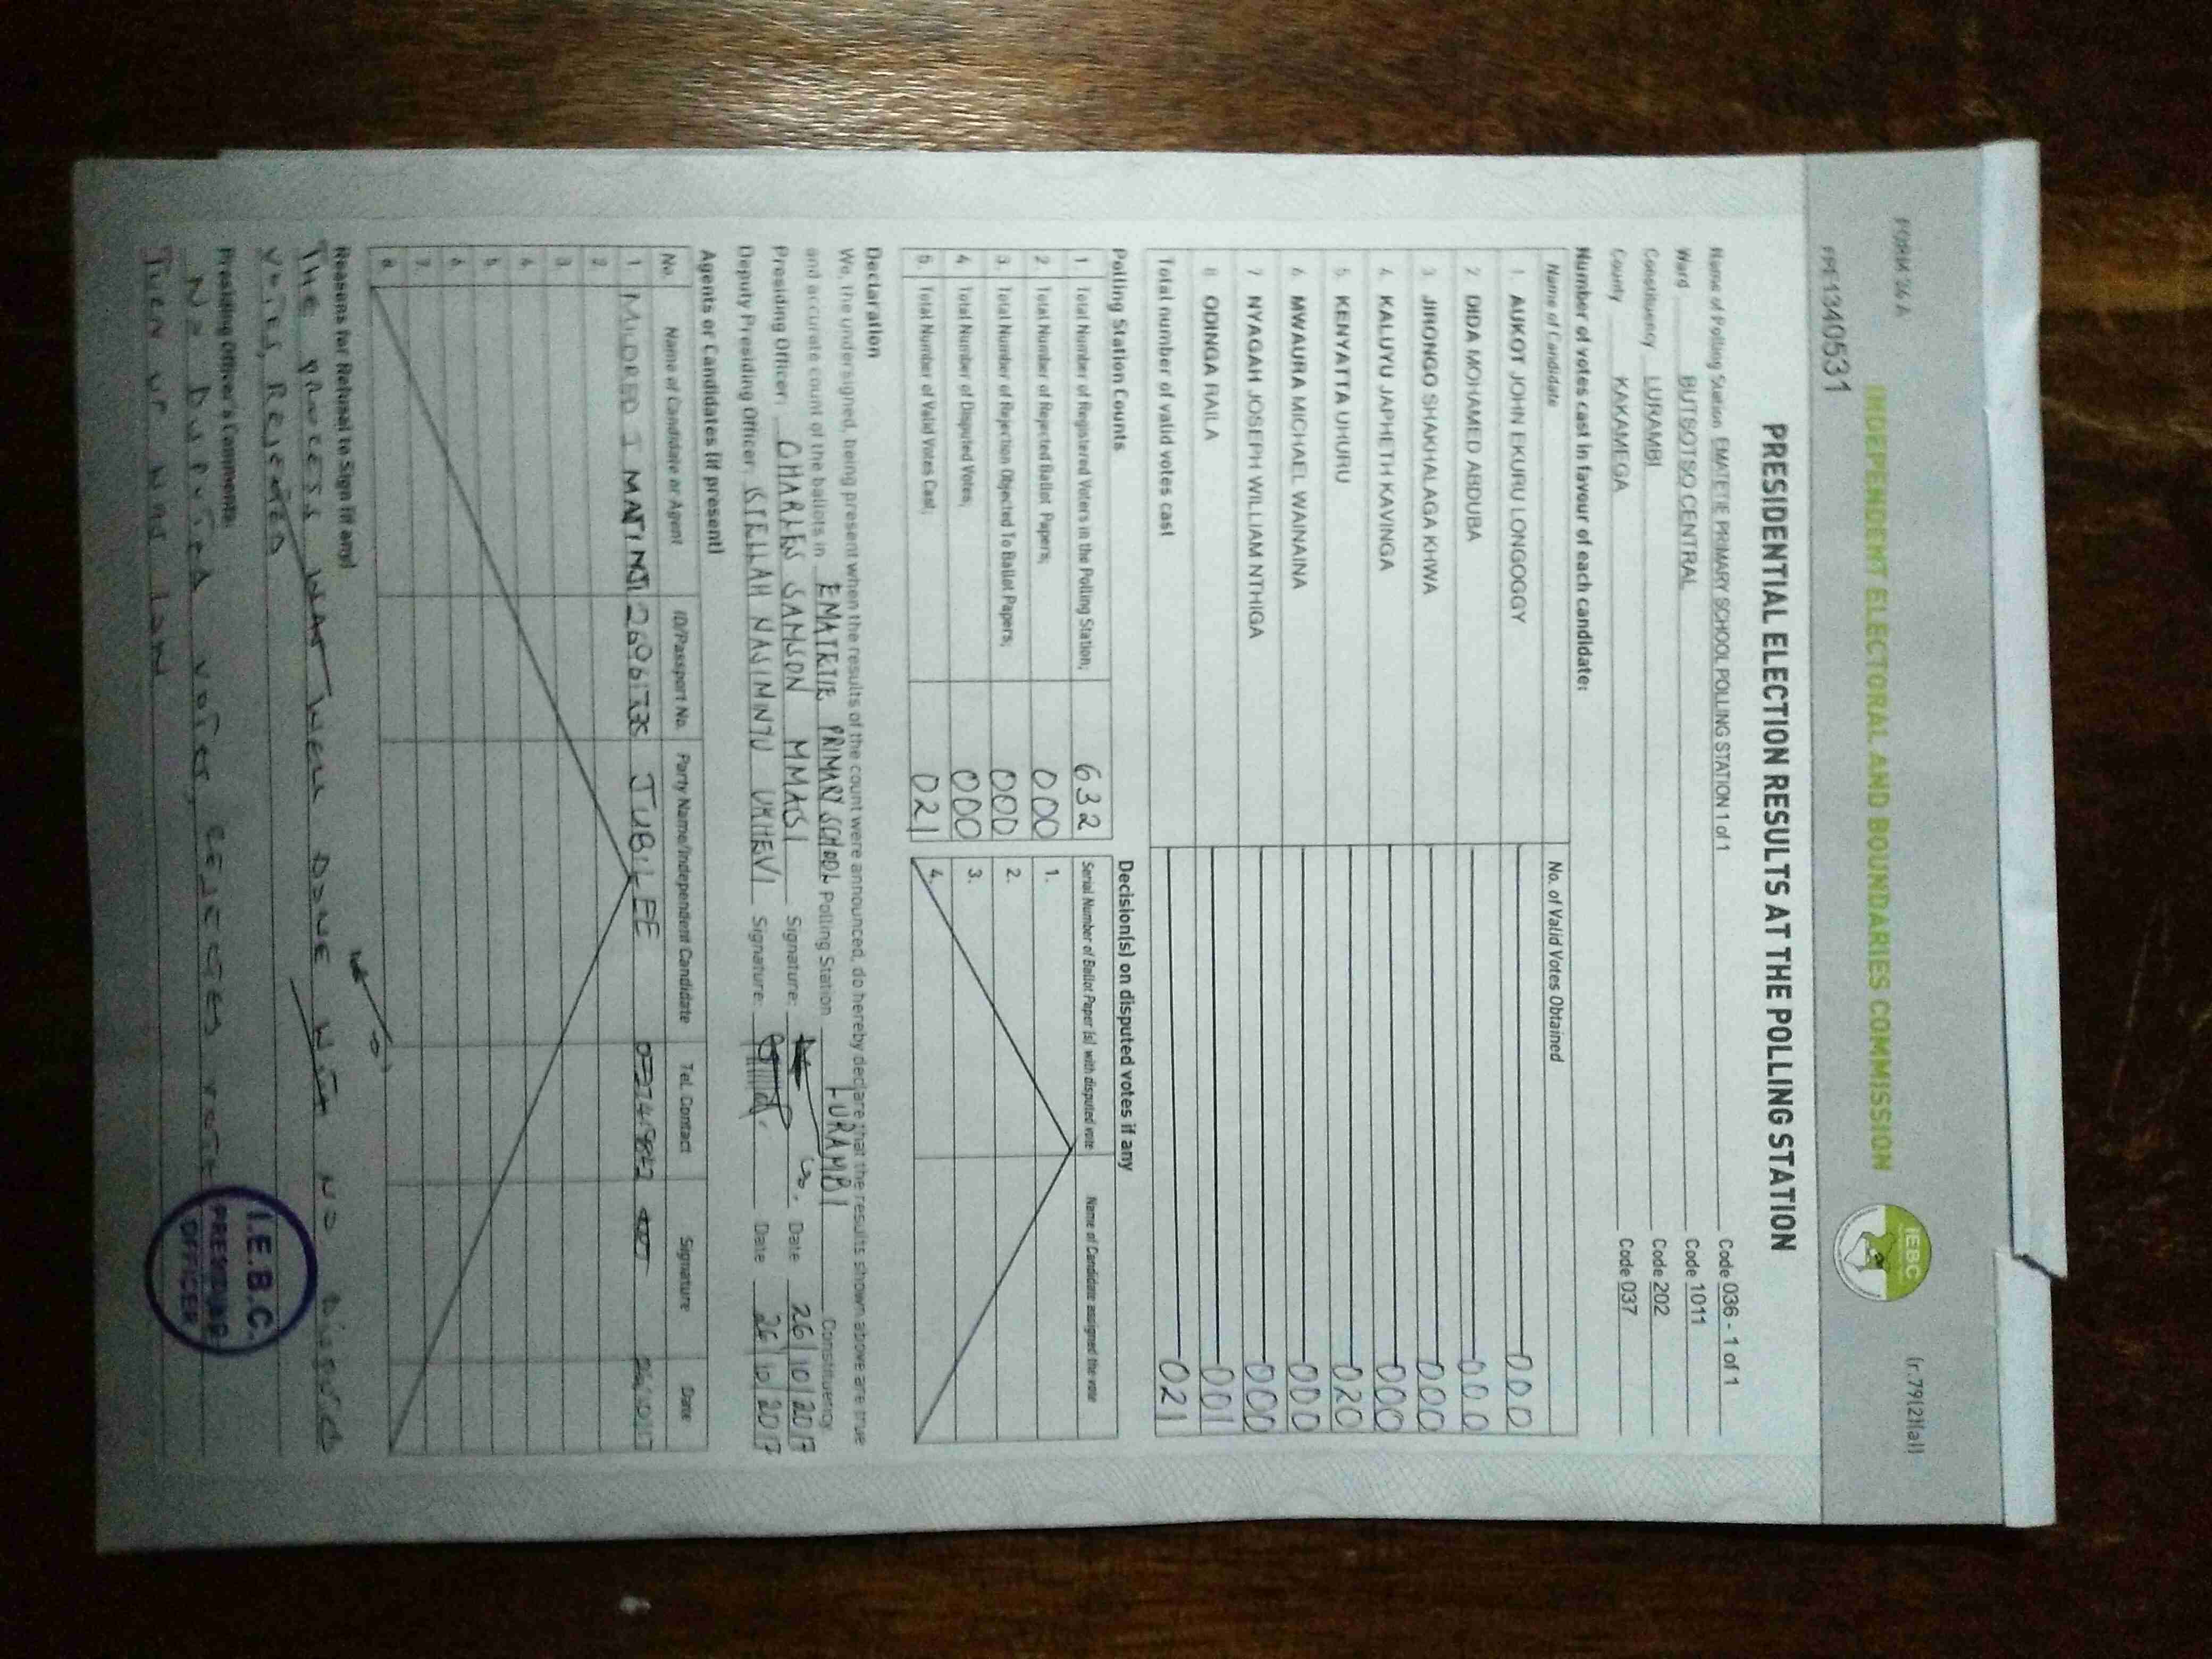 FORM 34A
(r.79(2)(a))
INDEPENDENT ELECTORAL AND BOUNDARIES COMMISSION
IEBC
FPE1340531
PRESIDENTIAL ELECTION RESULTS AT THE POLLING STATION
Name of Polling Station EMATETIE PRIMARY SCHOOL POLLING STATION 1 of 1 Code 036 - 1 of 1
Ward BUTSOTSO CENTRAL Code 1011
Constituency LURAMBI Code 202
County KAKAMEGA Code 037
Number of votes cast in favour of each candidate:
Name of Candidate No. of Valid Votes Obtained
1. AUKOT JOHN EKURU LONGOGGY 000
2 DIDA MOHAMED ABDUBA 000
3 JIRONGO SHAKHALAGA KHWA 000
4 KALUYU JAPHETH KAVINGA 000
5 KENYATTA UHURU 020
6 MWAURA MICHAEL WAINAINA 000
7 NYAGAH JOSEPH WILLIAM NTHIGA 000
8 ODINGA RAILA 001
Total number of valid votes cast 021
Polling Station Counts
1 Total Number of Registered Voters in the Polling Station; 632
2. Total Number of Rejected Ballot Papers; 000
3. Total Number of Rejection Objected To Ballot Papers; 000
4 Total Number of Disputed Votes; 000
5. Total Number of Valid Votes Cast; 021
Decision(s) on disputed votes if any
Serial Number of Ballot Paper (s) with disputed vote Name of Candidate assigned the vote
1.
2.
3.
4.
Declaration
We, the undersigned, being present when the results of the count were announced, do hereby declare that the results shown above are true
and accurate count of the ballots in EMATETIE PRIMARY SCHOOL Polling Station LURAMBI Constituency
Presiding Officer; CHARLES SAMSON MMASI Signature: Date 26/10/2017
Deputy Presiding Officer; STELLAH NASIMIYU Signature: Date 26/10/2017
Agents or Candidates (if present)
No. Name of Candidate or Agent ID/Passport No. Party Name/Independent Candidate Tel. Contact Signature Date
1 MILDRED I JUBILEE
2
3
4
5
6
7.
8
Reasons for Refusal to Sign (if any)
The process was well done with no disputed
votes, Rejected
Presiding Officer's Comments:
No Disputed votes, rejected votes
Turn up was low
I.E.B.C.
PRESIDING
OFFICER